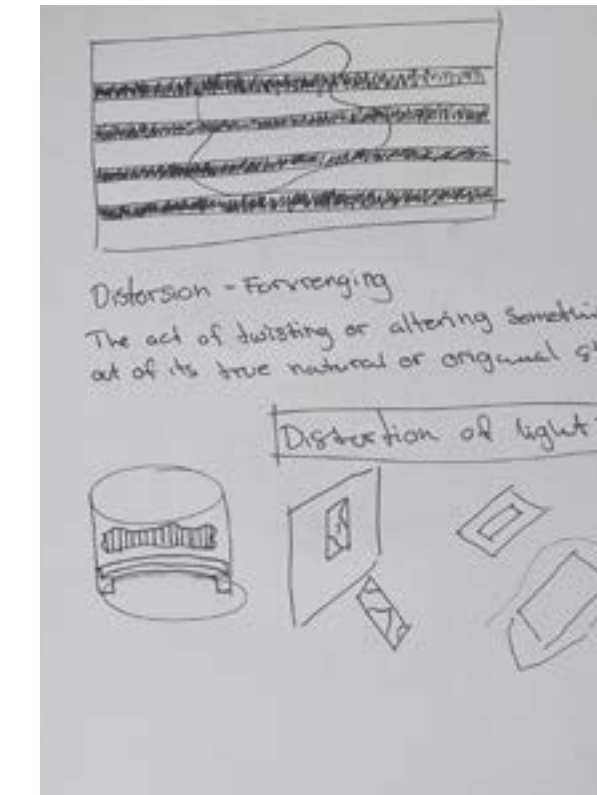 Distorsion - Forvrenging
The act of twisting or altering somethi
out of its true natural or original st
Distortion of light